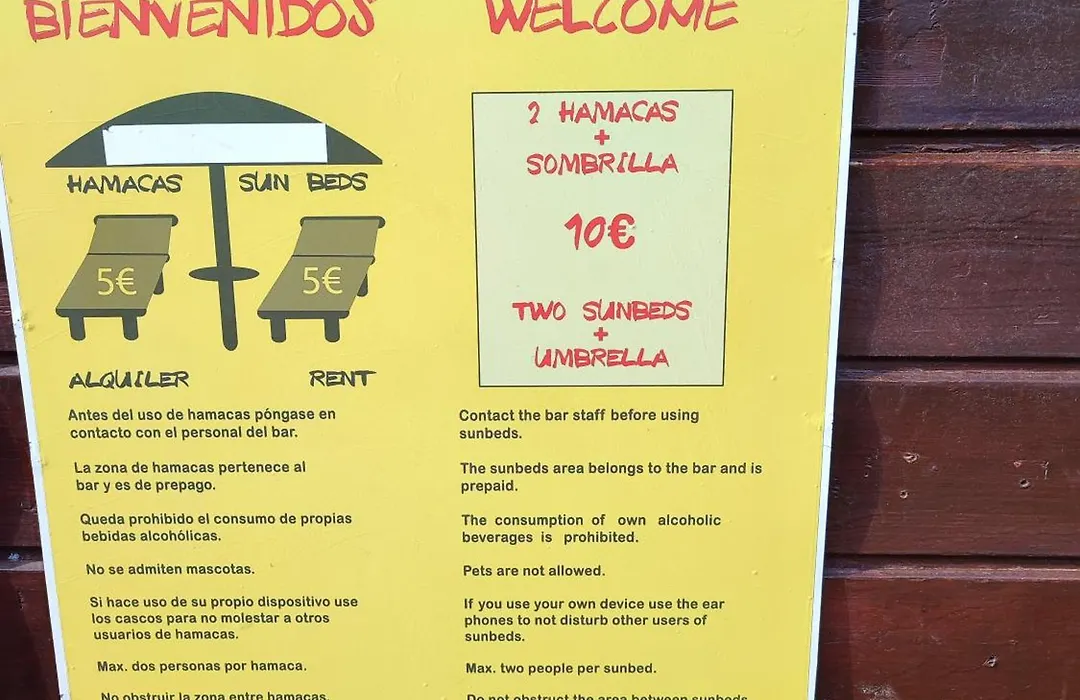 BIENVENIDOS
WELCOME
HAMACAS
SUN BEDS
5€
5€
ALQUILER
RENT
2 HAMACAS
+
SOMBRILLA
10€
TWO SUNBEDS
+
UMBRELLA
Antes del uso de hamacas póngase en
contacto con el personal del bar.
La zona de hamacas pertenece al
bar y es de prepago.
Queda prohibido el consumo de propias
bebidas alcohólicas.
No se admiten mascotas.
Si hace uso de su propio dispositivo use
los cascos para no molestar a otros
usuarios de hamacas.
Max. dos personas por hamaca.
No obstruir la zona entre hamacas.
Contact the bar staff before using
sunbeds.
The sunbeds area belongs to the bar and is
prepaid.
The consumption of own alcoholic
beverages is prohibited.
Pets are not allowed.
If you use your own device use the ear
phones to not disturb other users of
sunbeds.
Max. two people per sunbed.
Do not obstruct the area between sunbeds.